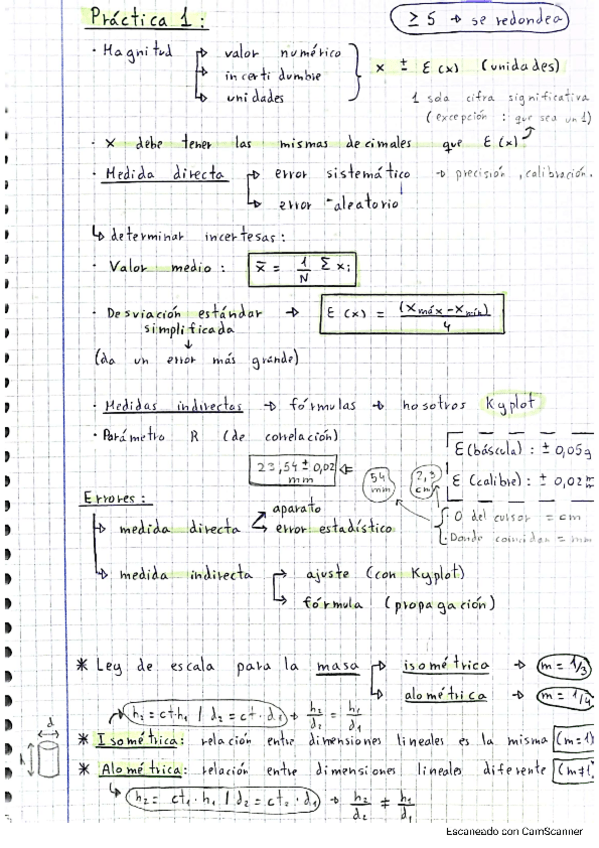 Práctica 1:
≥ 5 → se redondea
· Magnitud → valor numérico
→ incertidumbre
→ unidades
x ± ε(x) (unidades)
1 sola cifra significativa
(excepción : que sea un 1)
· x debe tener las mismas decimales que ε(x)
· Medida directa → error sistemático → precisión, calibración.
→ error aleatorio
↳ determinar incertesas:
· Valor medio: x̄ = 1/N Σ xi
· Desviación estándar simplificada → ε(x) = (xmáx - xmín)/4
(da un error más grande)
· Medidas indirectas → fórmulas → nosotros Kyplot
· Parámetro R (de correlación)
ε(báscula): ± 0,05g
ε(calibre): ± 0,02
23,54 ± 0,02 mm
54 mm
2,3 cm
0 del cursor = cm
· Donde coincidan = mm
Errores:
→ medida directa → aparato
→ error estadístico
→ medida indirecta → ajuste (con Kyplot)
→ fórmula (propagación)
* Ley de escala para la masa → isométrica → m = 1/3
→ alométrica → m = 1/4
h₂ = ct·h₁ / d₂ = ct·d₁ → h₂/d₂ = h₁/d₁
* Isométrica: relación entre dimensiones lineales es la misma (m=1)
* Alométrica: relación entre dimensiones lineales diferente (m≠1)
↳ h₂ = ct₁·h₁ / d₂ = ct₂·d₁ → h₂/d₂ ≠ h₁/d₁
d
h
Escaneado con CamScanner